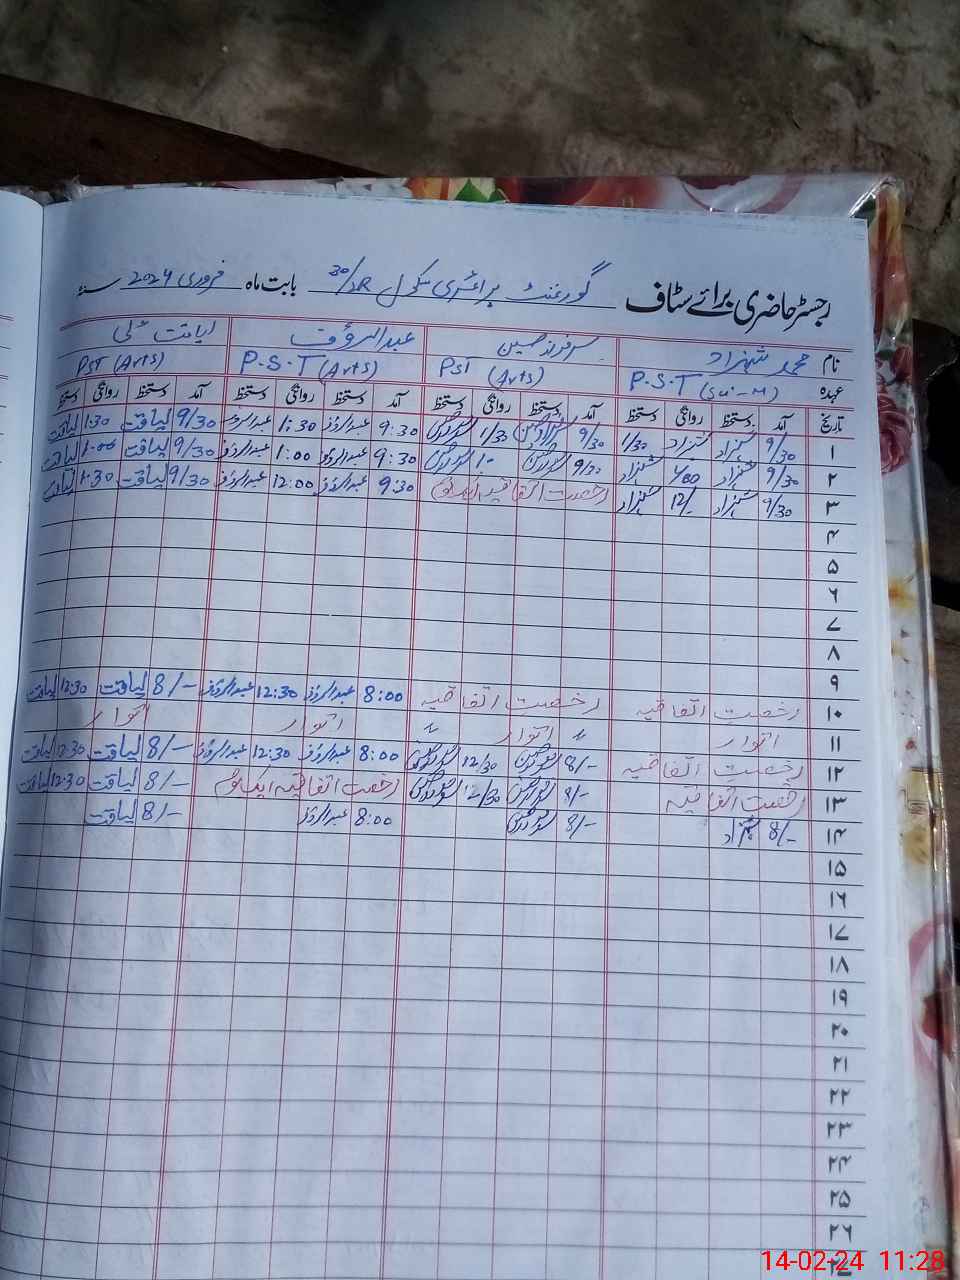 رجسٹر حاضری برائے سٹاف گورنمنٹ پرائمری سکول 30/2R بابت ماہ فروری 2024 سنہ
نام محمد شہزاد سرفراز حسین عبدالرؤف لیاقت علی
عہدہ P.S.T (Sci-M) PST (Arts) P.S.T (Arts) PST (Arts)
تاریخ آمد دستخط روانگی دستخط آمد دستخط روانگی دستخط آمد دستخط روانگی دستخط آمد دستخط روانگی دستخط
۱ 9/30 شہزاد شہزاد 1/30 9/30 1/30 9:30 عبدالرؤف 1:30 عبدالرؤف 9/30 لیاقت 1:30 لیاقت
۲ 9/30 شہزاد شہزاد 9/30 9:30 عبدالرؤف 1:00 عبدالرؤف 9/30 لیاقت 1:00 لیاقت
۳ 9/30 شہزاد 12/- شہزاد رخصت اتفاقیہ ایک یوم 9:30 عبدالرؤف 12:00 عبدالرؤف 9/30 لیاقت 1:30 لیاقت
۴
۵
۶
۷
۸
۹
۱۰ رخصت اتفاقیہ رخصت اتفاقیہ 8:00 عبدالرؤف 12:30 عبدالرؤف 8/- لیاقت 12:30 لیاقت
۱۱ اتوار " اتوار " اتوار اتوار
۱۲ رخصت اتفاقیہ 8/- 12/30 8:00 عبدالرؤف 12:30 عبدالرؤف 8/- لیاقت 12:30 لیاقت
۱۳ رخصت اتفاقیہ 8/- 12/30 رخصت اتفاقیہ ایک یوم 8/- لیاقت 12:30 لیاقت
۱۴ 8/- شہزاد 8/- 8:00 عبدالرؤف 8/- لیاقت
۱۵
۱۶
۱۷
۱۸
۱۹
۲۰
۲۱
۲۲
۲۳
۲۴
۲۵
۲۶
14-02-24 11:28